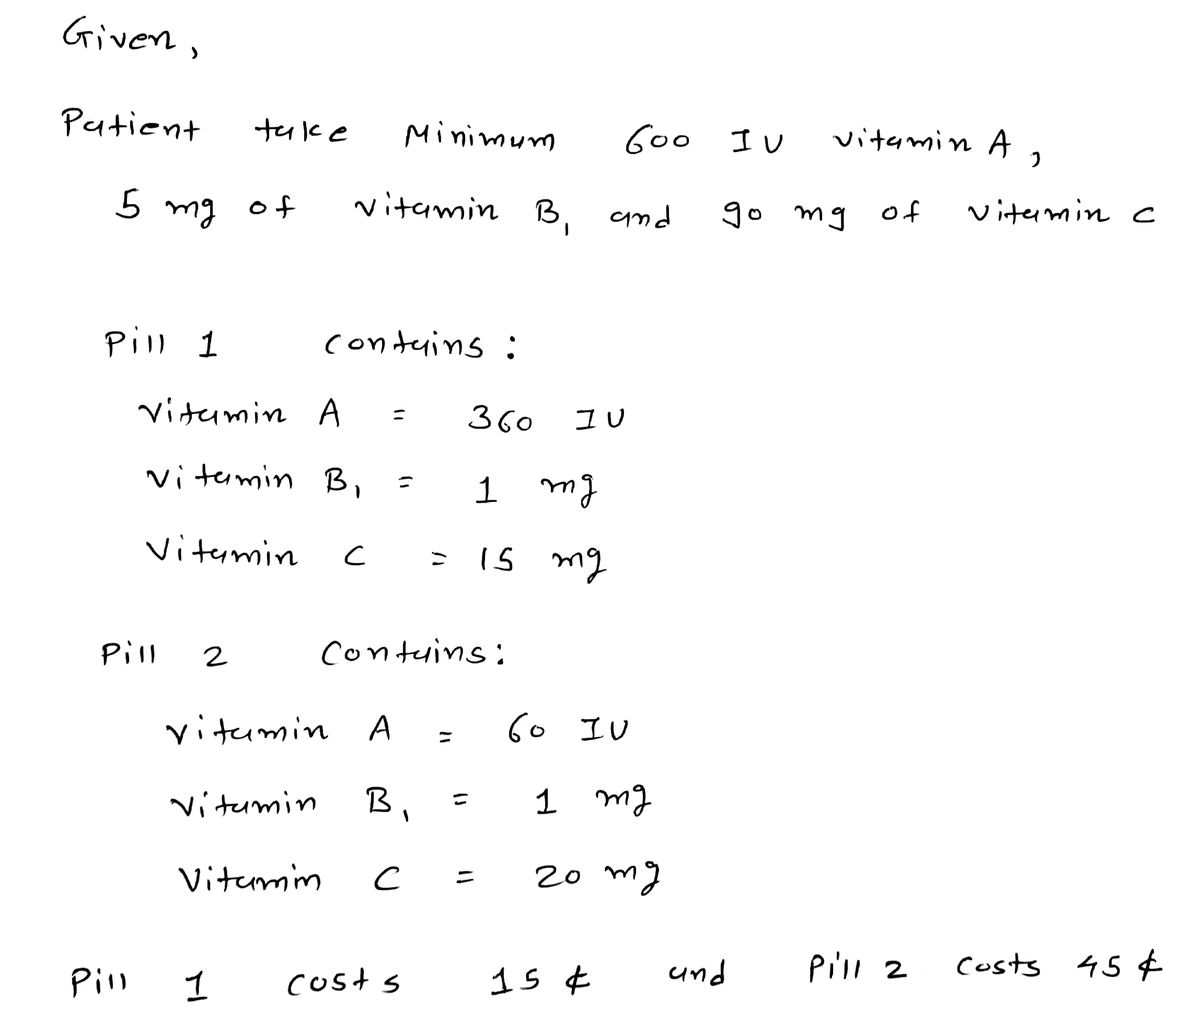 Given,
Patient take Minimum 600 IU vitamin A,
5 mg of vitamin B₁ and 90 mg of vitamin C
Pill 1 contains:
Vitamin A = 360 IU
Vitamin B₁ = 1 mg
Vitamin C = 15 mg
Pill 2 Contains:
vitamin A = 60 IU
Vitamin B₁ = 1 mg
Vitamin C = 20 mg
Pill 1 costs 15 ¢ and Pill 2 Costs 45 ¢